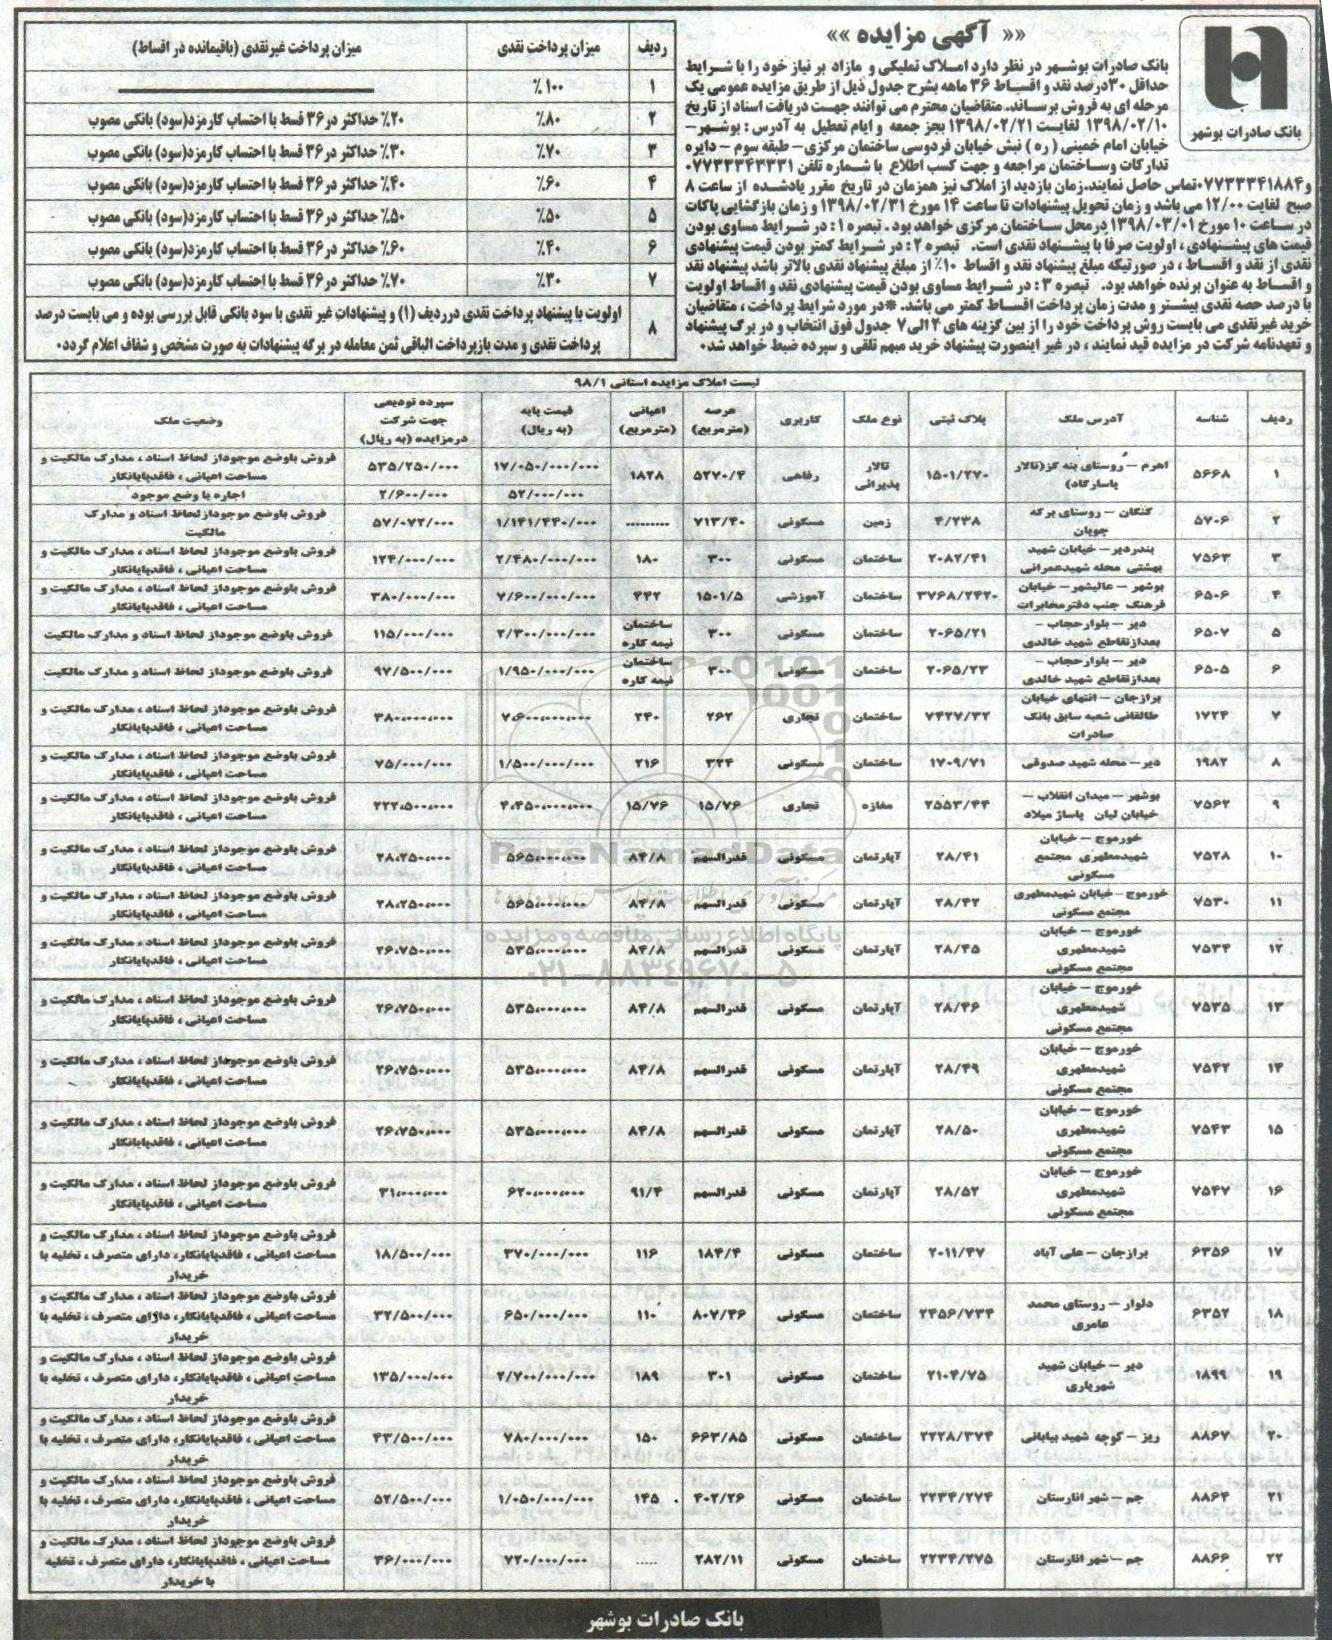 «« آگهی مزایده »»
بانک صادرات بوشهر در نظر دارد املاک تملیکی و مازاد بر نیاز خود را با شرایط
حداقل ۳۰درصد نقد و اقساط ۳۶ ماهه بشرح جدول ذیل از طریق مزایده عمومی یک
مرحله ای به فروش برساند. متقاضیان محترم می توانند جهت دریافت اسناد از تاریخ
۱۳۹۸/۰۲/۱۰ لغایت ۱۳۹۸/۰۲/۲۱ بجز جمعه و ایام تعطیل به آدرس : بوشهر–
خیابان امام خمینی ( ره ) نبش خیابان فردوسی ساختمان مرکزی– طبقه سوم – دایره
تدارکات وساختمان مراجعه و جهت کسب اطلاع با شماره تلفن ۰۷۷۳۳۳۴۳۳۳۱
و۰۷۷۳۳۳۴۱۸۸۴تماس حاصل نمایند.زمان بازدید از املاک نیز همزمان در تاریخ مقرر یادشده از ساعت ۸
صبح لغایت ۱۲/۰۰ می باشد و زمان تحویل پیشنهادات تا ساعت ۱۴ مورخ ۱۳۹۸/۰۲/۳۱ و زمان بازگشایی پاکات
در ساعت ۱۰ مورخ ۱۳۹۸/۰۳/۰۱ درمحل ساختمان مرکزی خواهد بود . تبصره ۱ : در شرایط مساوی بودن
قیمت های پیشنهادی ، اولویت صرفا با پیشنهاد نقدی است. تبصره ۲ : در شرایط کمتر بودن قیمت پیشنهادی
نقدی از نقد و اقساط ، در صورتیکه مبلغ پیشنهاد نقد و اقساط ۱۰٪ از مبلغ پیشنهاد نقدی بالاتر باشد پیشنهاد نقد
و اقساط به عنوان برنده خواهد بود. تبصره ۳ : در شرایط مساوی بودن قیمت پیشنهادی نقد و اقساط اولویت
با درصد حصه نقدی بیشتر و مدت زمان پرداخت اقساط کمتر می باشد. *در مورد شرایط پرداخت ، متقاضیان
خرید غیرنقدی می بایست روش پرداخت خود را از بین گزینه های ۲ الی ۷ جدول فوق انتخاب و در برگ پیشنهاد
و تعهدنامه شرکت در مزایده قید نمایند ، در غیر اینصورت پیشنهاد خرید مبهم تلقی و سپرده ضبط خواهد شد.
بانک صادرات بوشهر
ردیف میزان پرداخت نقدی میزان پرداخت غیرنقدی (باقیمانده در اقساط)
۱ ۱۰۰٪
۲ ۸۰٪ ۲۰٪ حداکثر در۳۶ قسط با احتساب کارمزد(سود) بانکی مصوب
۳ ۷۰٪ ۳۰٪ حداکثر در۳۶ قسط با احتساب کارمزد(سود) بانکی مصوب
۴ ۶۰٪ ۴۰٪ حداکثر در۳۶ قسط با احتساب کارمزد(سود) بانکی مصوب
۵ ۵۰٪ ۵۰٪ حداکثر در۳۶ قسط با احتساب کارمزد(سود) بانکی مصوب
۶ ۴۰٪ ۶۰٪ حداکثر در۳۶ قسط با احتساب کارمزد(سود) بانکی مصوب
۷ ۳۰٪ ۷۰٪ حداکثر در۳۶ قسط با احتساب کارمزد(سود) بانکی مصوب
۸ اولویت با پیشنهاد پرداخت نقدی درردیف (۱) و پیشنهادات غیر نقدی با سود بانکی قابل بررسی بوده و می بایست درصد
پرداخت نقدی و مدت بازپرداخت الباقی ثمن معامله در برگه پیشنهادات به صورت مشخص و شفاف اعلام گردد.
لیست املاک مزایده استانی ۹۸/۱
ردیف شناسه آدرس ملک پلاک ثبتی نوع ملک کاربری عرصه (مترمربع) اعیانی (مترمربع) قیمت پایه (به ریال) سپرده تودیعی جهت شرکت درمزایده (به ریال) وضعیت ملک
۱ ۵۶۶۸ اهرم – روستای بنه گز(تالار پاسارگاد) ۱۵۰۱/۲۷۰ تالار پذیرائی رفاهی ۵۲۷۰/۴ ۱۸۲۸ ۱۷/۰۵۰/۰۰۰/۰۰۰ ۵۳۵/۲۵۰/۰۰۰ فروش باوضع موجوداز لحاظ اسناد ، مدارک مالکیت و مساحت اعیانی ، فاقدپایانکار
۵۲/۰۰۰/۰۰۰ ۲/۶۰۰/۰۰۰ اجاره با وضع موجود
۲ ۵۷۰۶ کنگان – روستای برکه چوپان ۴/۲۳۸ زمین مسکونی ۷۱۳/۴۰ ......... ۱/۱۴۱/۴۴۰/۰۰۰ ۵۷/۰۷۲/۰۰۰ فروش باوضع موجودازلحاظ اسناد و مدارک مالکیت
۳ ۷۵۶۳ بندردیر– خیابان شهید بهشتی محله شهیدعمرانی ۲۰۸۲/۴۱ ساختمان مسکونی ۳۰۰ ۱۸۰ ۲/۴۸۰/۰۰۰/۰۰۰ ۱۲۴/۰۰۰/۰۰۰ فروش باوضع موجوداز لحاظ اسناد ، مدارک مالکیت و مساحت اعیانی ، فاقدپایانکار
۴ ۶۵۰۶ بوشهر – عالیشهر – خیابان فرهنگ جنب دفترمخابرات ۳۷۶۸/۲۴۲۰ ساختمان آموزشی ۱۵۰۱/۵ ۴۴۲ ۷/۶۰۰/۰۰۰/۰۰۰ ۳۸۰/۰۰۰/۰۰۰ فروش باوضع موجوداز لحاظ اسناد ، مدارک مالکیت و مساحت اعیانی ، فاقدپایانکار
۵ ۶۵۰۷ دیر – بلوارحجاب – بعدازتقاطع شهید خالدی ۲۰۶۵/۲۱ ساختمان مسکونی ۳۰۰ ساختمان نیمه کاره ۲/۳۰۰/۰۰۰/۰۰۰ ۱۱۵/۰۰۰/۰۰۰ فروش باوضع موجوداز لحاظ اسناد و مدارک مالکیت
۶ ۶۵۰۵ دیر – بلوارحجاب – بعدازتقاطع شهید خالدی ۲۰۶۵/۲۳ ساختمان مسکونی ۳۰۰ ساختمان نیمه کاره ۱/۹۵۰/۰۰۰/۰۰۰ ۹۷/۵۰۰/۰۰۰ فروش باوضع موجوداز لحاظ اسناد و مدارک مالکیت
۷ ۱۷۲۴ برازجان – انتهای خیابان طالقانی شعبه سابق بانک صادرات ۷۴۲۷/۳۲ ساختمان تجاری ۲۶۲ ۲۴۰ ۷،۶۰۰،۰۰۰،۰۰۰ ۳۸۰،۰۰۰،۰۰۰ فروش باوضع موجوداز لحاظ اسناد ، مدارک مالکیت و مساحت اعیانی ، فاقدپایانکار
۸ ۱۹۸۲ دیر– محله شهید صدوقی ۱۷۰۹/۷۱ ساختمان مسکونی ۳۲۴ ۲۱۶ ۱/۵۰۰/۰۰۰/۰۰۰ ۷۵/۰۰۰/۰۰۰ فروش باوضع موجوداز لحاظ اسناد ، مدارک مالکیت و مساحت اعیانی ، فاقدپایانکار
۹ ۷۵۶۲ بوشهر – میدان انقلاب – خیابان لیان پاساژ میلاد ۲۵۵۳/۴۴ مغازه تجاری ۱۵/۷۶ ۱۵/۷۶ ۴،۴۵۰،۰۰۰،۰۰۰ ۲۲۲،۵۰۰،۰۰۰ فروش باوضع موجوداز لحاظ اسناد ، مدارک مالکیت و مساحت اعیانی ، فاقدپایانکار
۱۰ ۷۵۲۸ خورموج – خیابان شهیدمطهری مجتمع مسکونی ۲۸/۴۱ آپارتمان مسکونی قدرالسهم ۸۴/۸ ۵۶۵،۰۰۰،۰۰۰ ۲۸،۲۵۰،۰۰۰ فروش باوضع موجوداز لحاظ اسناد ، مدارک مالکیت و مساحت اعیانی ، فاقدپایانکار
۱۱ ۷۵۳۰ خورموج – خیابان شهیدمطهری مجتمع مسکونی ۲۸/۴۲ آپارتمان مسکونی قدرالسهم ۸۴/۸ ۵۶۵،۰۰۰،۰۰۰ ۲۸،۲۵۰،۰۰۰ فروش باوضع موجوداز لحاظ اسناد ، مدارک مالکیت و مساحت اعیانی ، فاقدپایانکار
۱۲ ۷۵۳۴ خورموج – خیابان شهیدمطهری مجتمع مسکونی ۲۸/۴۵ آپارتمان مسکونی قدرالسهم ۸۴/۸ ۵۳۵،۰۰۰،۰۰۰ ۲۶،۷۵۰،۰۰۰ فروش باوضع موجوداز لحاظ اسناد ، مدارک مالکیت و مساحت اعیانی ، فاقدپایانکار
۱۳ ۷۵۳۵ خورموج – خیابان شهیدمطهری مجتمع مسکونی ۲۸/۴۶ آپارتمان مسکونی قدرالسهم ۸۴/۸ ۵۳۵،۰۰۰،۰۰۰ ۲۶،۷۵۰،۰۰۰ فروش باوضع موجوداز لحاظ اسناد ، مدارک مالکیت و مساحت اعیانی ، فاقدپایانکار
۱۴ ۷۵۴۲ خورموج – خیابان شهیدمطهری مجتمع مسکونی ۲۸/۴۹ آپارتمان مسکونی قدرالسهم ۸۴/۸ ۵۳۵،۰۰۰،۰۰۰ ۲۶،۷۵۰،۰۰۰ فروش باوضع موجوداز لحاظ اسناد ، مدارک مالکیت و مساحت اعیانی ، فاقدپایانکار
۱۵ ۷۵۴۳ خورموج – خیابان شهیدمطهری مجتمع مسکونی ۲۸/۵۰ آپارتمان مسکونی قدرالسهم ۸۴/۸ ۵۳۵،۰۰۰،۰۰۰ ۲۶،۷۵۰،۰۰۰ فروش باوضع موجوداز لحاظ اسناد ، مدارک مالکیت و مساحت اعیانی ، فاقدپایانکار
۱۶ ۷۵۴۷ خورموج – خیابان شهیدمطهری مجتمع مسکونی ۲۸/۵۲ آپارتمان مسکونی قدرالسهم ۹۱/۴ ۶۲۰،۰۰۰،۰۰۰ ۳۱،۰۰۰،۰۰۰ فروش باوضع موجوداز لحاظ اسناد ، مدارک مالکیت و مساحت اعیانی ، فاقدپایانکار
۱۷ ۶۳۵۶ برازجان – علی آباد ۲۰۱۱/۴۷ ساختمان مسکونی ۱۸۴/۴ ۱۱۶ ۳۷۰/۰۰۰/۰۰۰ ۱۸/۵۰۰/۰۰۰ فروش باوضع موجوداز لحاظ اسناد ، مدارک مالکیت و مساحت اعیانی ، فاقدپایانکار، دارای متصرف ، تخلیه با خریدار
۱۸ ۶۳۵۲ دلوار – روستای محمد عامری ۲۴۵۶/۷۳۴ ساختمان مسکونی ۸۰۷/۴۶ ۱۱۰ ۶۵۰/۰۰۰/۰۰۰ ۳۲/۵۰۰/۰۰۰ فروش باوضع موجوداز لحاظ اسناد ، مدارک مالکیت و مساحت اعیانی ، فاقدپایانکار، دارای متصرف ، تخلیه با خریدار
۱۹ ۱۸۹۹ دیر – خیابان شهید شهریاری ۲۱۰۴/۷۵ ساختمان مسکونی ۳۰۱ ۱۸۹ ۲/۷۰۰/۰۰۰/۰۰۰ ۱۳۵/۰۰۰/۰۰۰ فروش باوضع موجوداز لحاظ اسناد ، مدارک مالکیت و مساحت اعیانی ، فاقدپایانکار، دارای متصرف ، تخلیه با خریدار
۲۰ ۸۸۶۷ ریز – کوچه شهید بیابانی ۲۲۲۸/۳۷۴ ساختمان مسکونی ۶۶۳/۸۵ ۱۵۰ ۷۸۰/۰۰۰/۰۰۰ ۴۳/۵۰۰/۰۰۰ فروش باوضع موجوداز لحاظ اسناد ، مدارک مالکیت و مساحت اعیانی ، فاقدپایانکار، دارای متصرف ، تخلیه با خریدار
۲۱ ۸۸۶۴ جم – شهر انارستان ۲۲۳۴/۲۷۴ ساختمان مسکونی ۴۰۲/۲۶ ۱۴۵ ۱/۰۵۰/۰۰۰/۰۰۰ ۵۲/۵۰۰/۰۰۰ فروش باوضع موجوداز لحاظ اسناد ، مدارک مالکیت و مساحت اعیانی ، فاقدپایانکار، دارای متصرف ، تخلیه با خریدار
۲۲ ۸۸۶۶ جم – شهر انارستان ۲۲۳۴/۲۷۵ ساختمان مسکونی ۲۸۲/۱۱ ..... ۷۲۰/۰۰۰/۰۰۰ ۳۶/۰۰۰/۰۰۰ فروش باوضع موجوداز لحاظ اسناد ، مدارک مالکیت و مساحت اعیانی ، فاقدپایانکار، دارای متصرف ، تخلیه با خریدار
ParsNamadData
پایگاه اطلاع رسانی مناقصه و مزایده
۰۲۱-۸۸۳۴۹۶۷۰-۵
بانک صادرات بوشهر